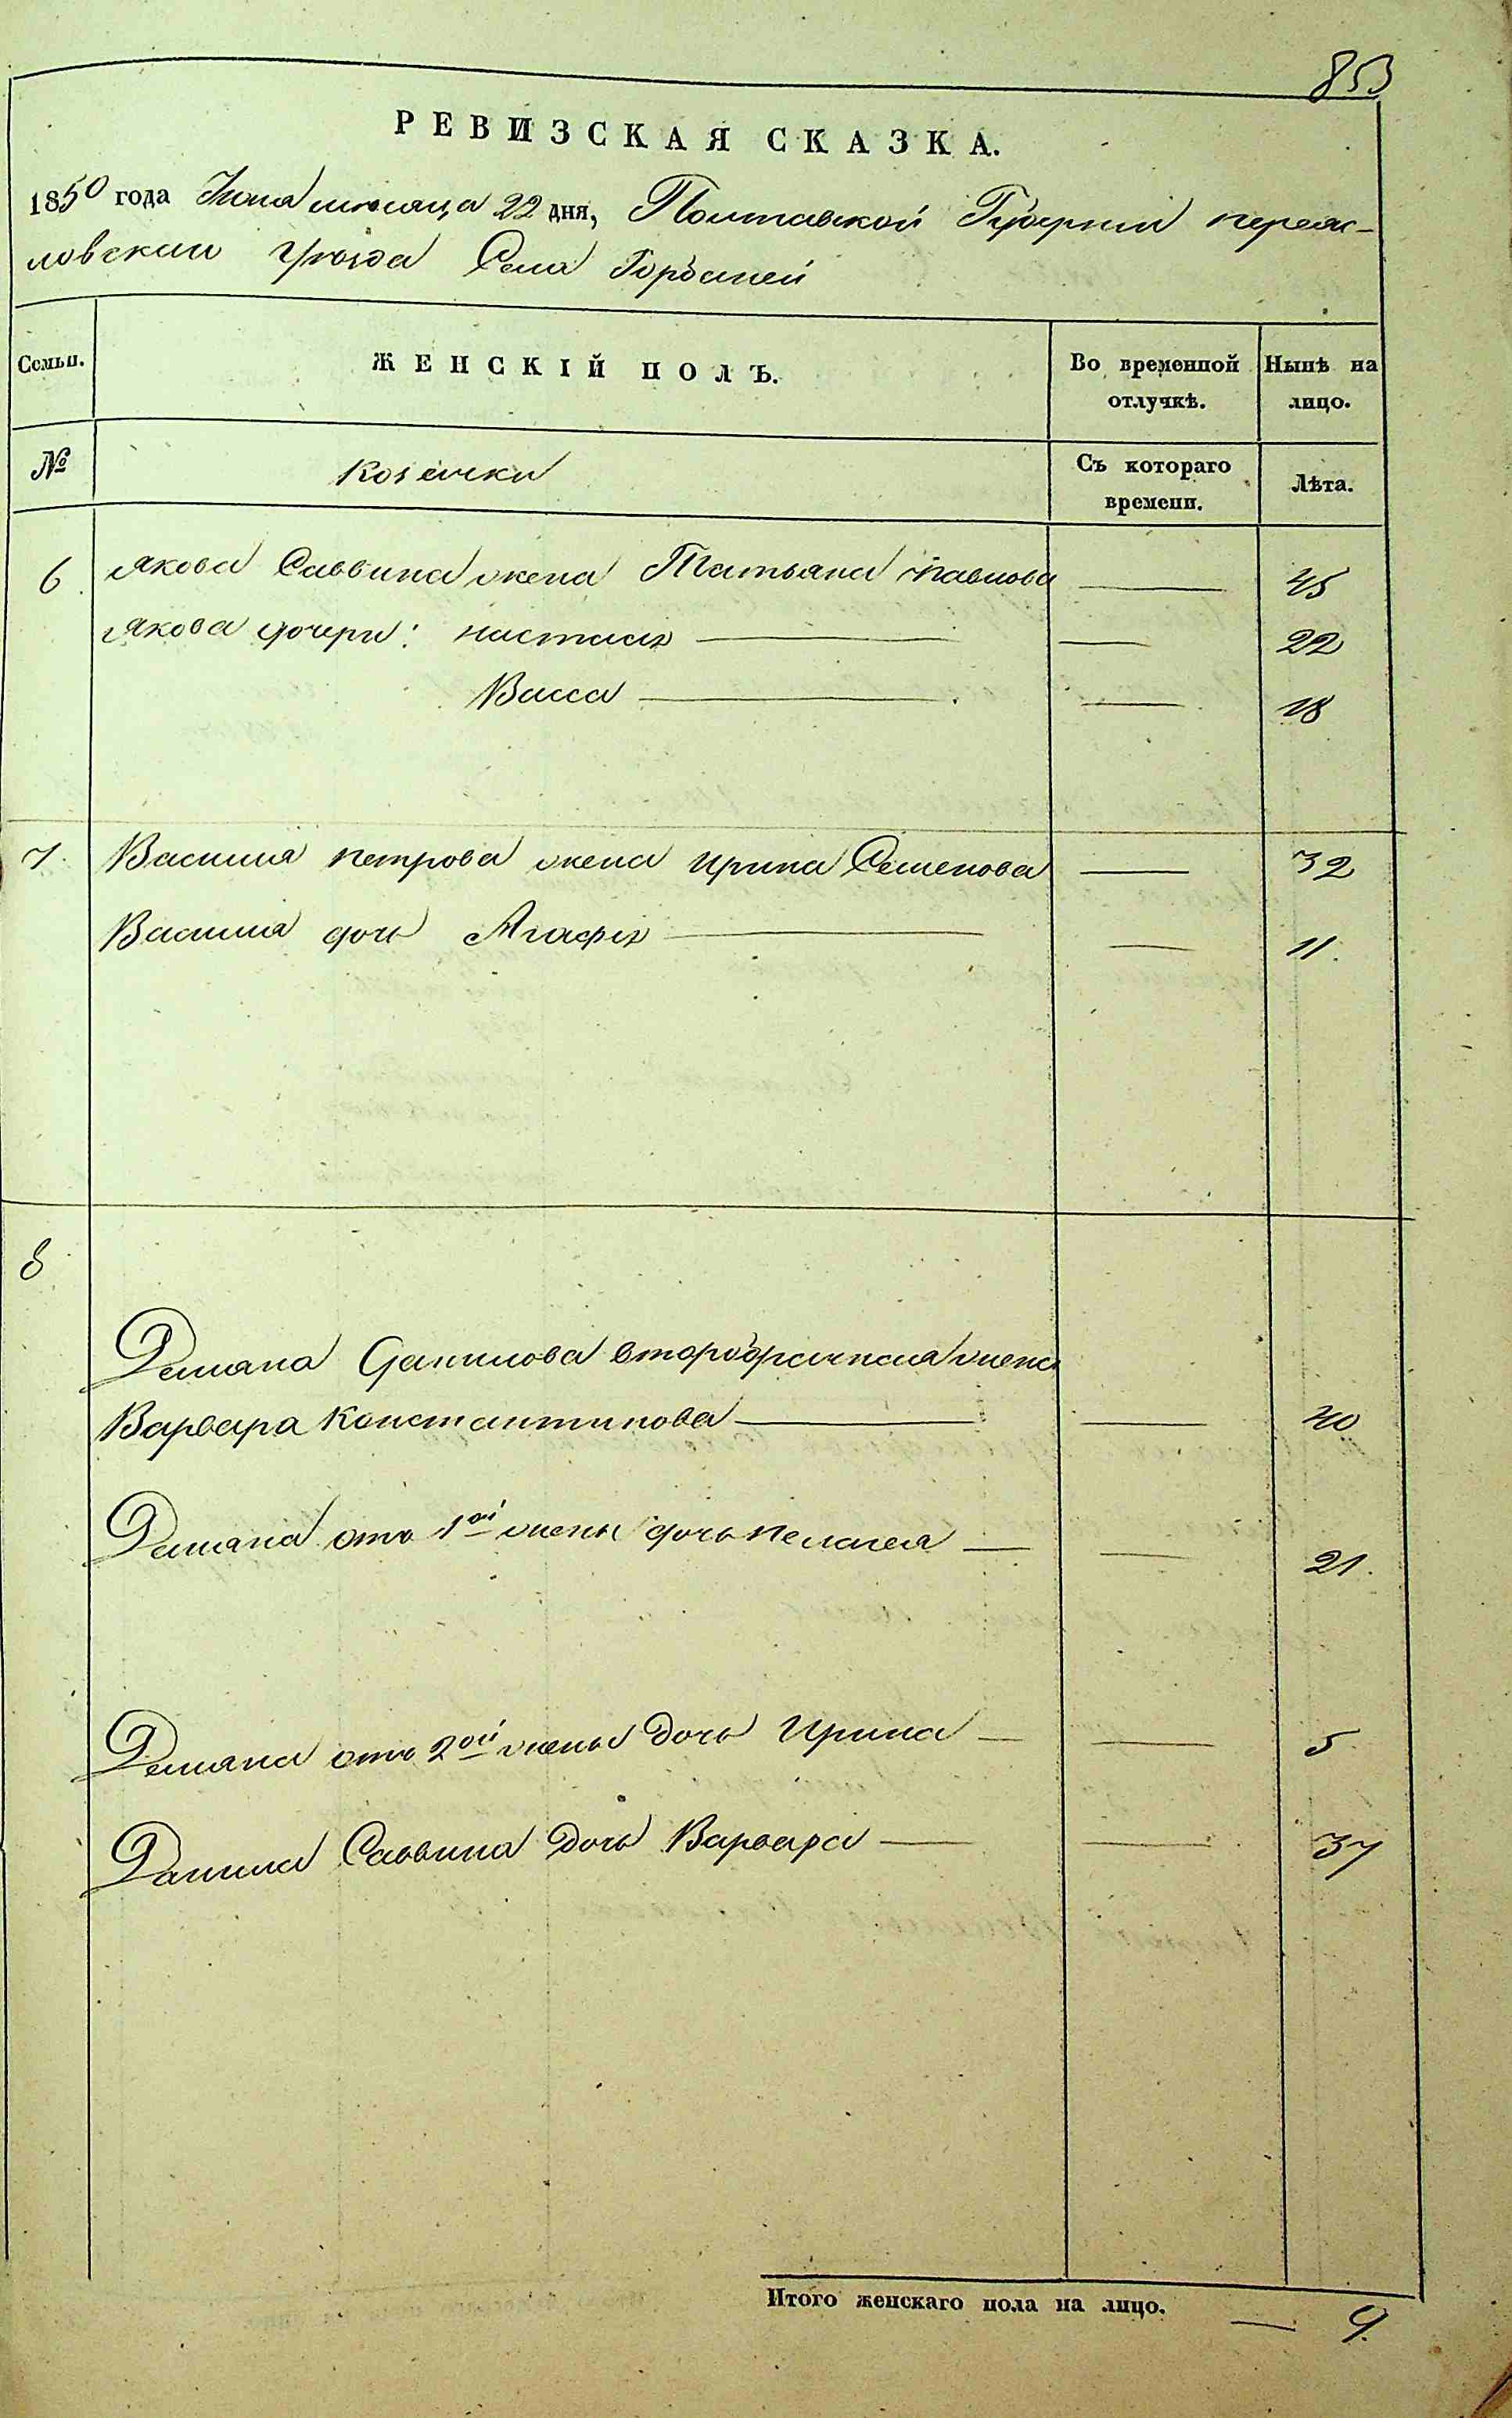 853
РЕВИЗСКАЯ СКАЗКА.
1850 года Июня месяца 22 дня, Полтавской Губернии переяс-
ловского уезда Села Горбаней
Семьи.
ЖЕНСКІЙ ПОЛЪ.
Во временной отлучкѣ.
Нынѣ на лицо.
№
козачки
Съ котораго времени.
Лѣта.
6 Якова Саввина жена Татьяна Павлова — 45
Якова дочери: настасія — — 22
Васса — — 18
7. Василия петрова жена Ирина Семенова — 32
Василия дочь Агафія — — 11.
8
Демяна Данилова второбрачная жена
Варвара Константинова — — 40
Демяна отъ 1ой жены дочь пелагея — — 21.
Демяна отъ 2ой жены дочь Ирина — — 5
Данила Саввина дочь Варвара — — 37
Итого женскаго пола на лицо. — 9.